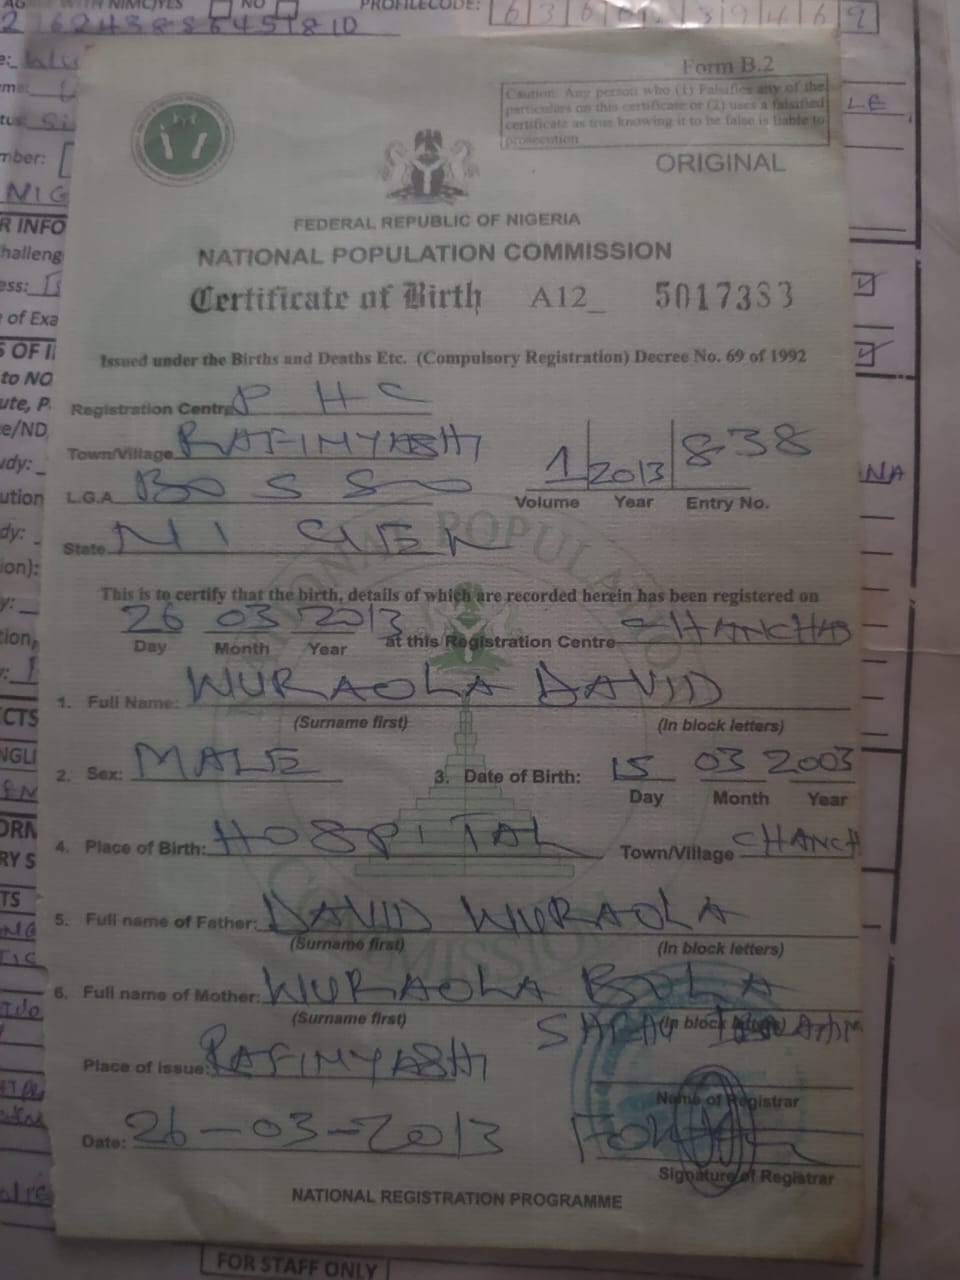 NIMC/YES NO PROFILECODE:
Form B.2
Caution: Any person who (1) Falsifies any of the
particulars on this certificate or (2) uses a falsified
certificate as true knowing it to be false is liable to
prosecution
ORIGINAL
FEDERAL REPUBLIC OF NIGERIA
NATIONAL POPULATION COMMISSION
Certificate of Birth A12_ 5017383
Issued under the Births and Deaths Etc. (Compulsory Registration) Decree No. 69 of 1992
Registration Centre P H C
Town/Village RAFINYASHI
L.G.A BOSSO
1 2013 838
Volume Year Entry No.
State NIGER
This is to certify that the birth, details of which are recorded herein has been registered on
26 03 2013 at this Registration Centre
Day Month Year
1. Full Name: WURAOLA DAVID
(Surname first) (In block letters)
2. Sex: MALE 3. Date of Birth: 15 03 2003
Day Month Year
4. Place of Birth: HOSPITAL Town/Village CHANCH
5. Full name of Father: DAVID WURAOLA
(Surname first) (In block letters)
6. Full name of Mother: WURAOLA BOLA
(Surname first) (In block letters)
Place of issue: RAFINYASHI
Name of Registrar
Date: 26-03-2013
Signature of Registrar
NATIONAL REGISTRATION PROGRAMME
FOR STAFF ONLY